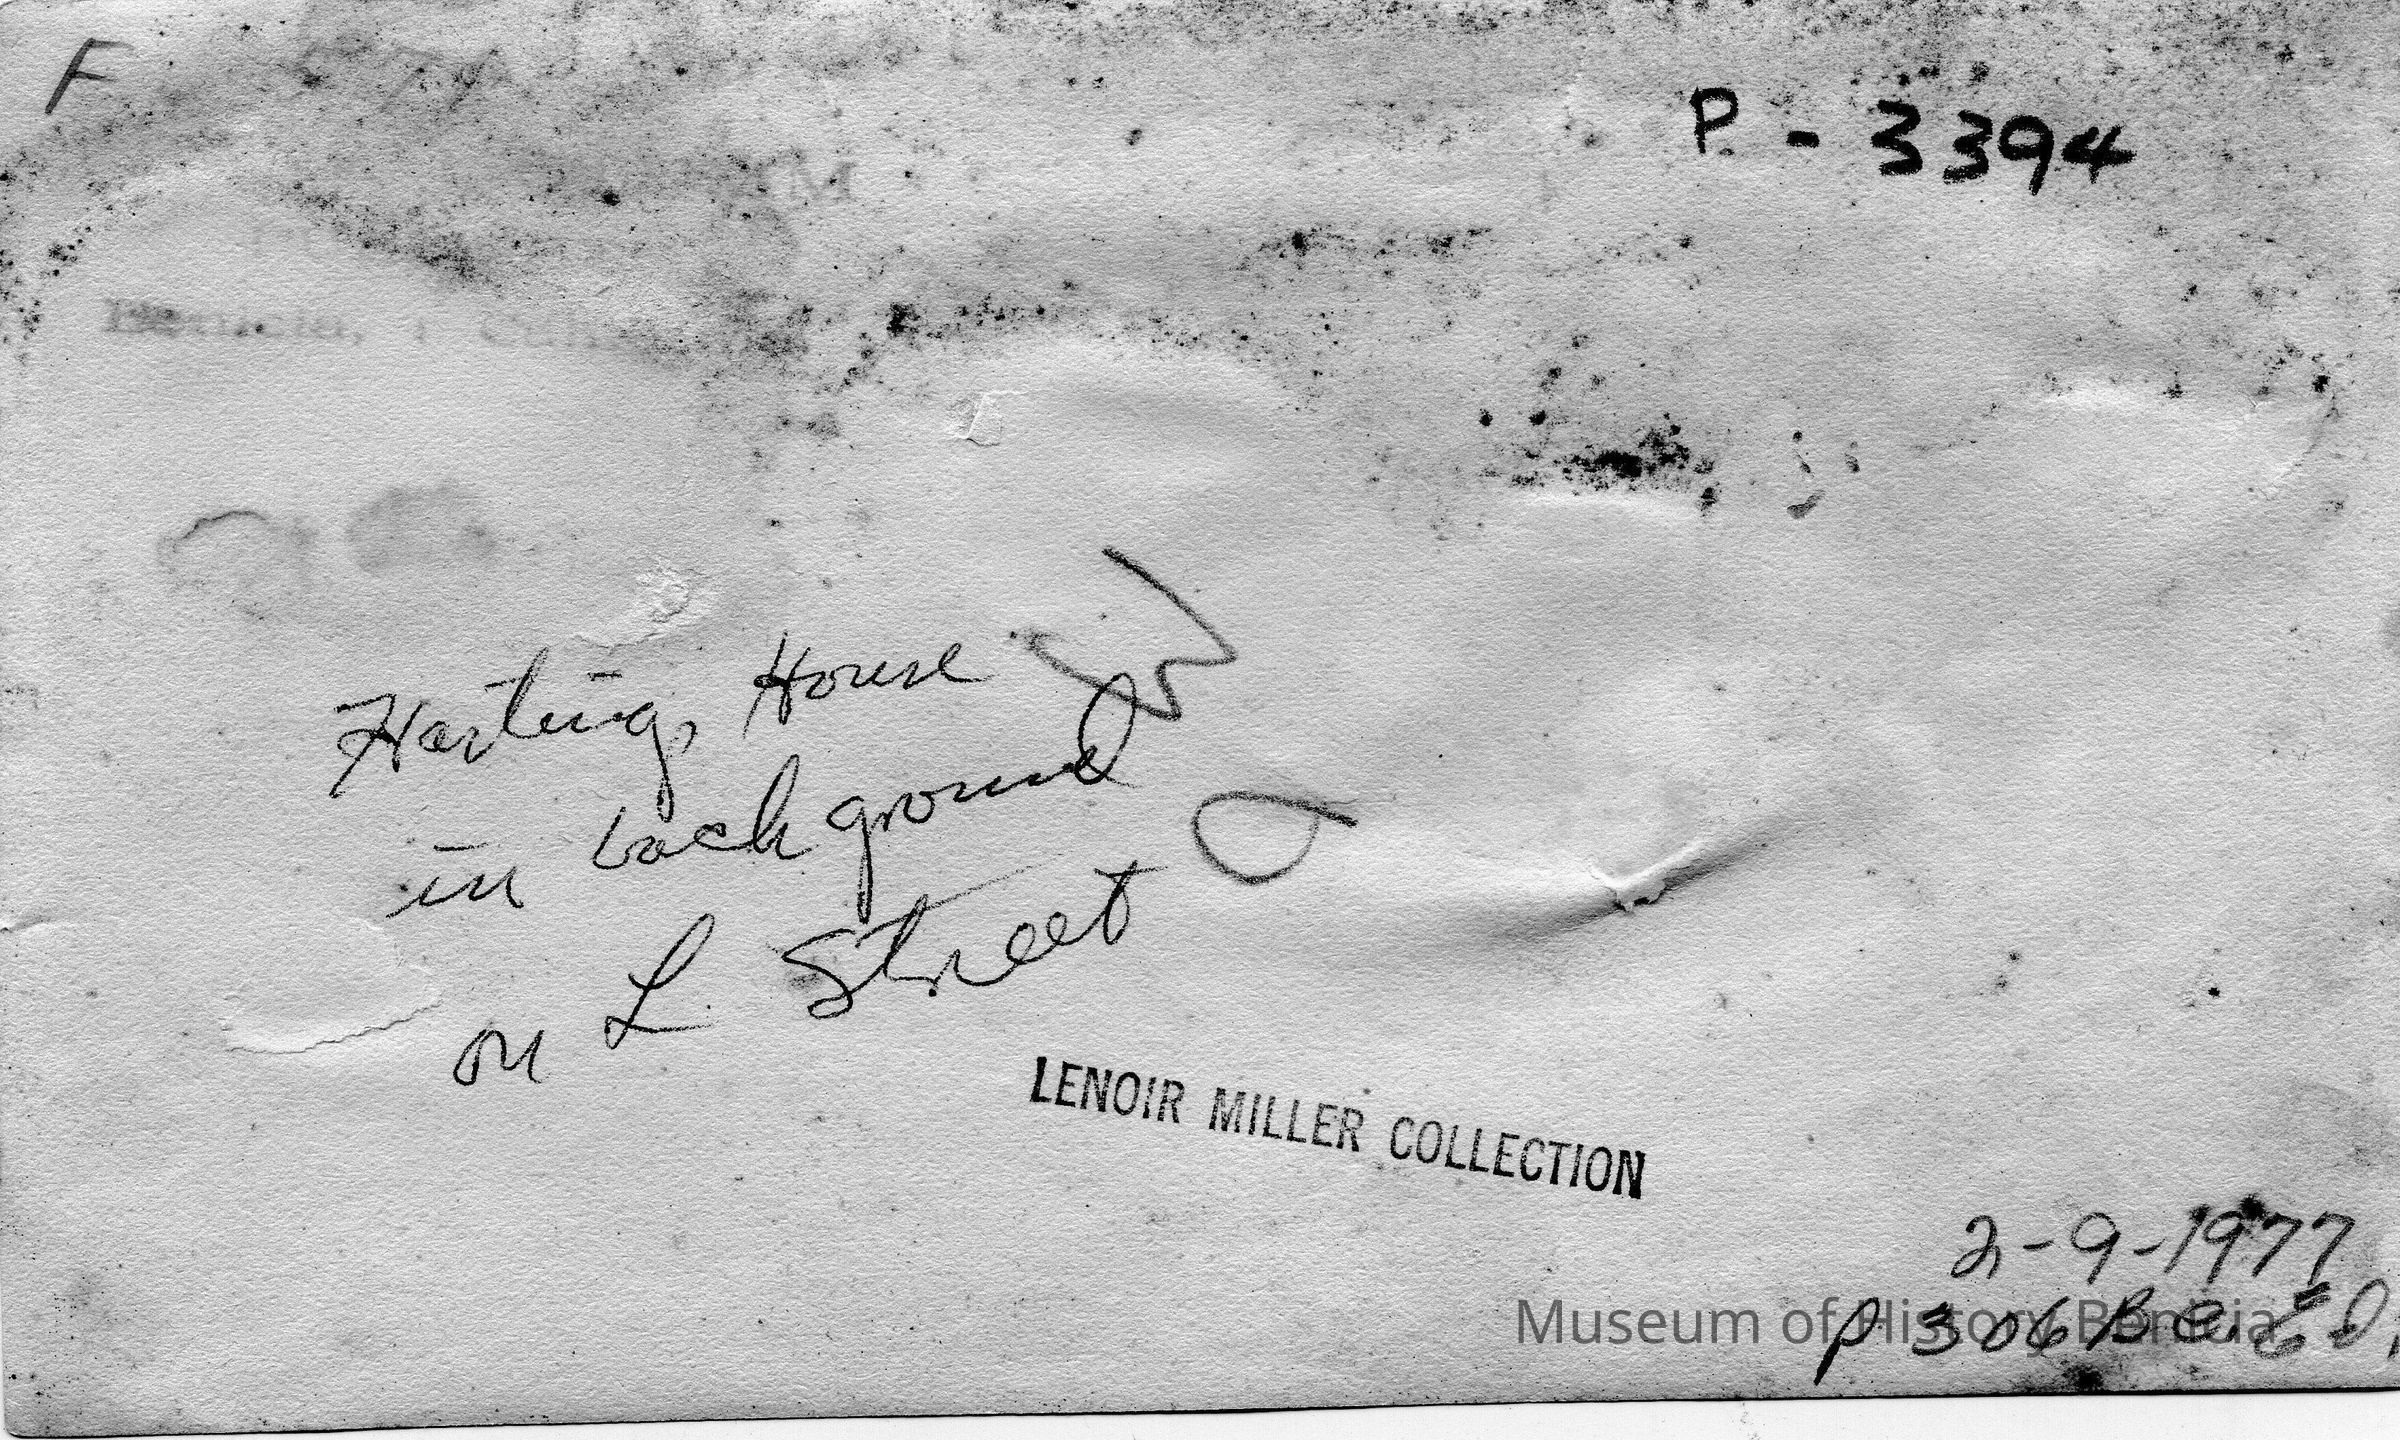 F
P - 3394
Hastings House
in background
on L Street
LENOIR MILLER COLLECTION
2-9-1977
Museum of History Benicia